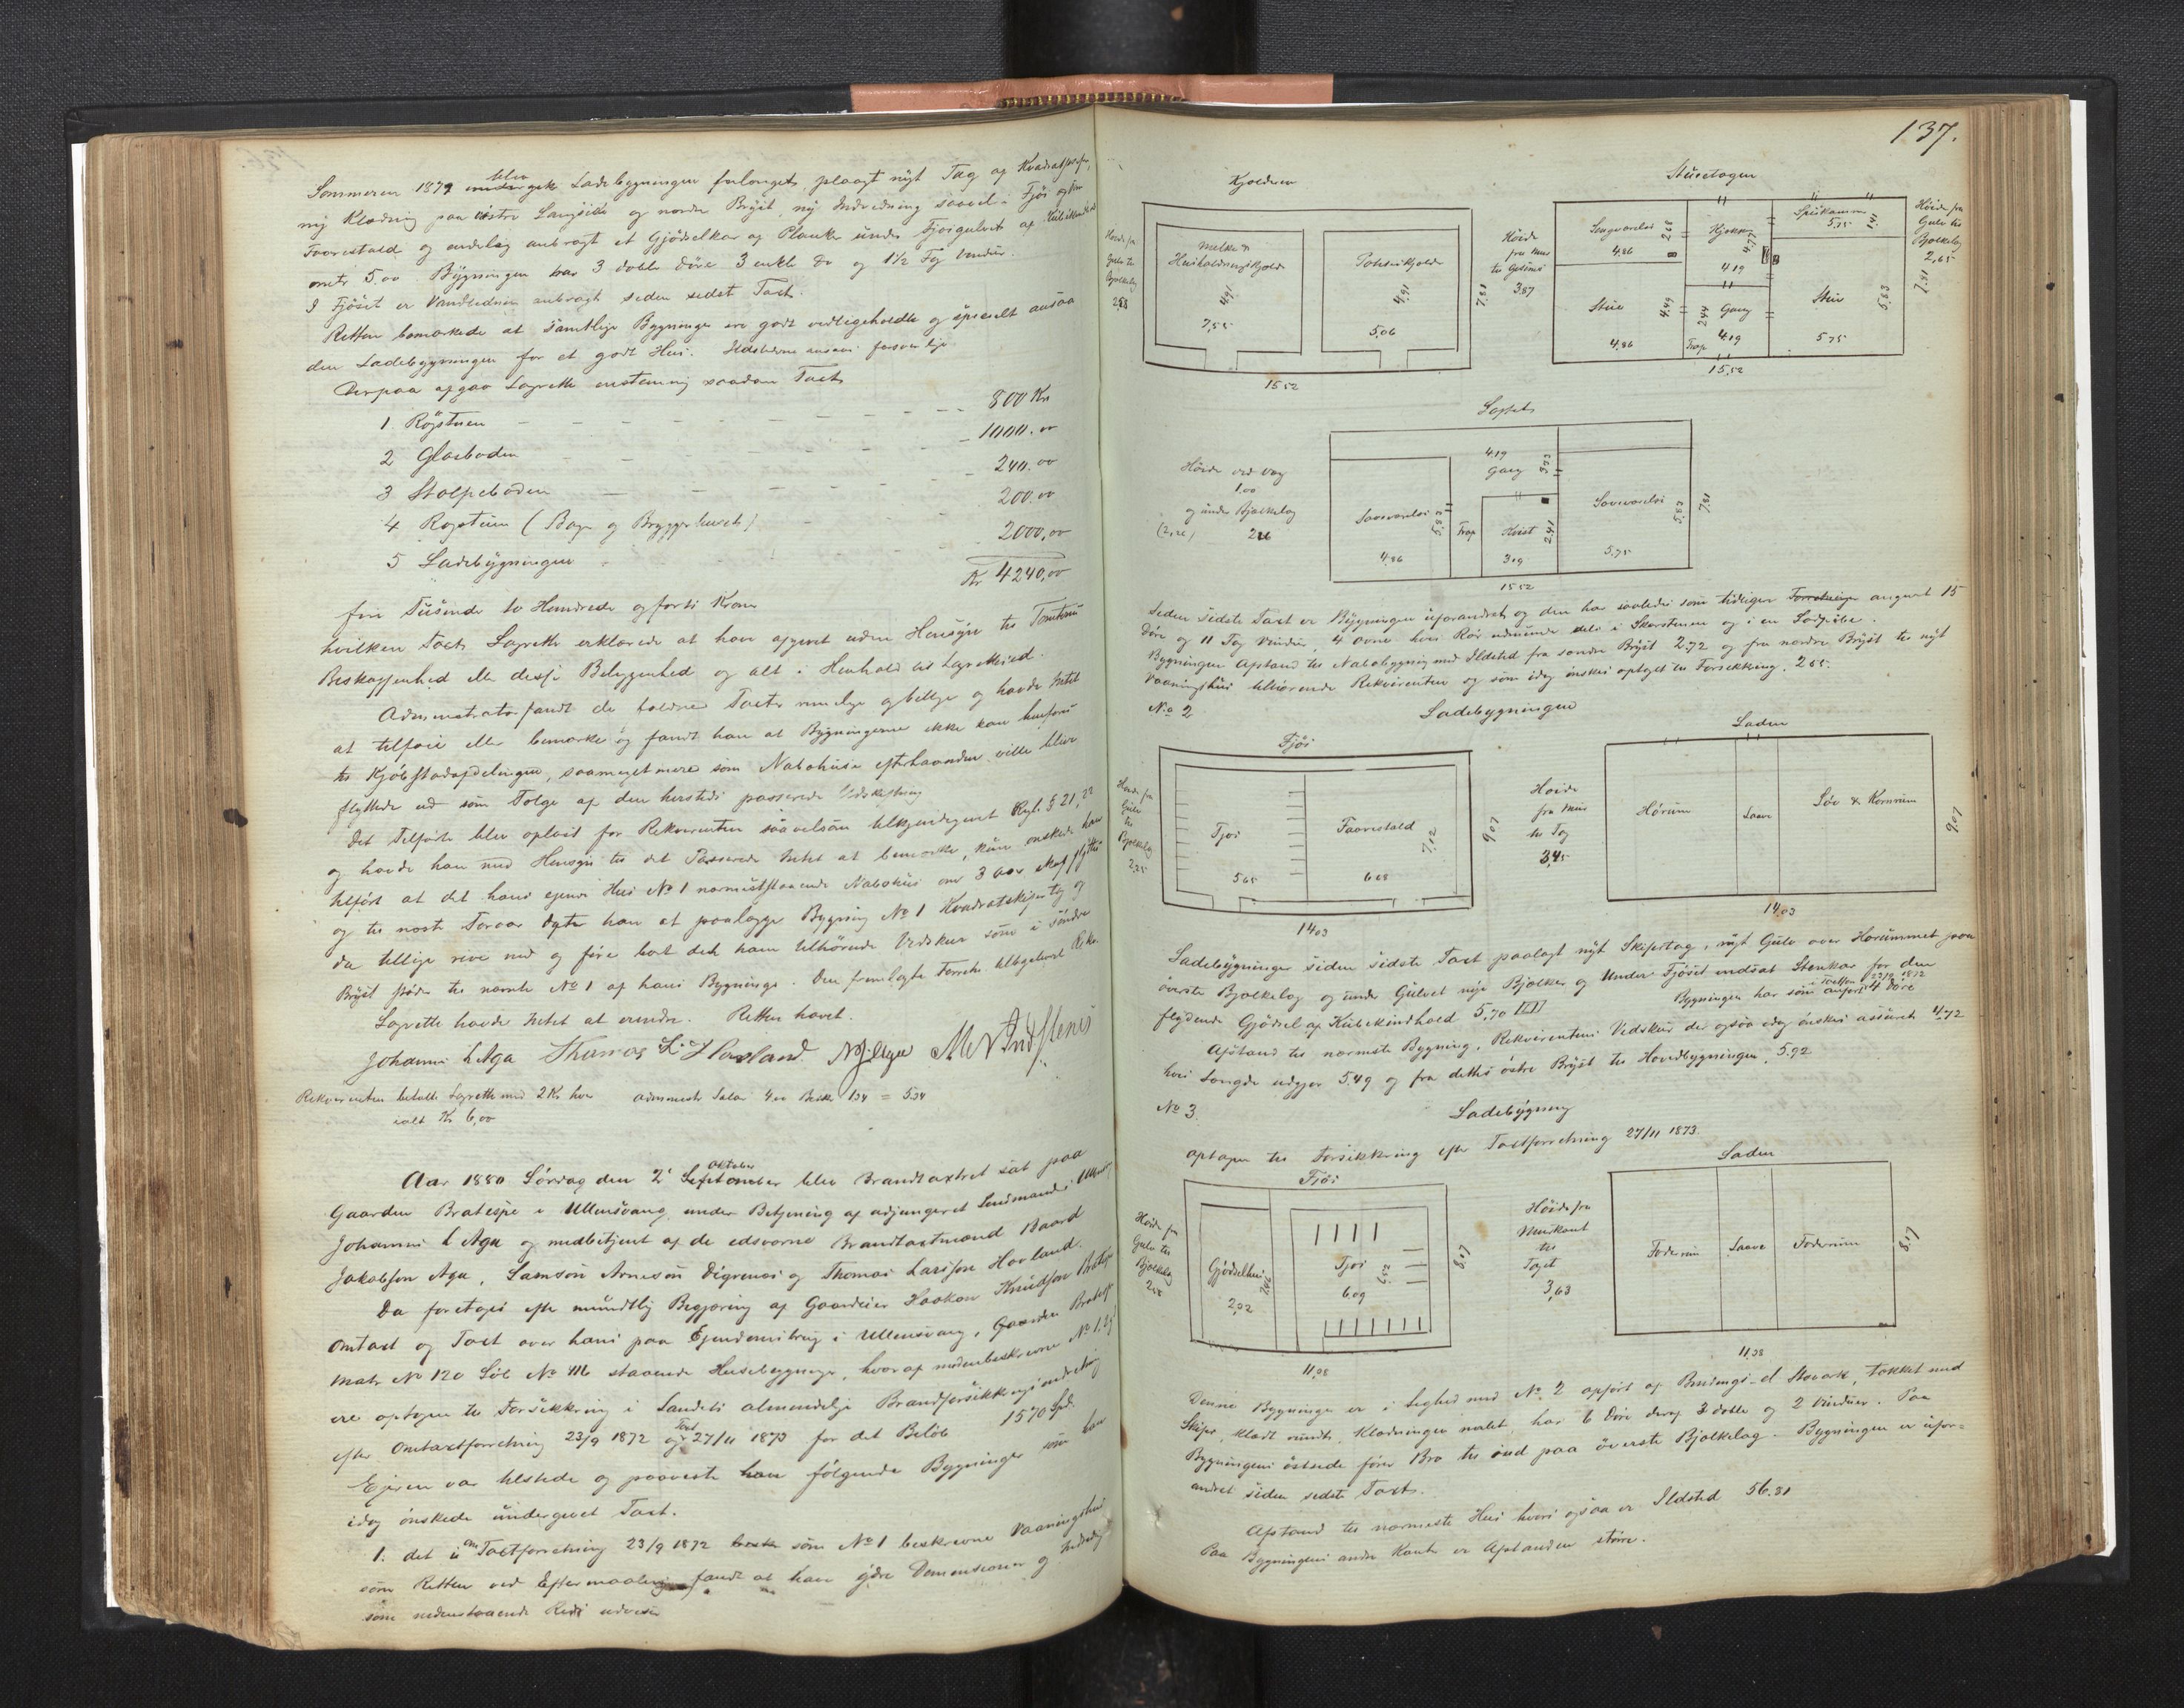 Sommeren 1879 blev Ladebygningen forlænget, plaagt nyt Tag af
ny Klædning paa østre Langside og nordre Bryst, ny Indredning saavel i Fjøs og
Faarestald og endelig anbragt et Gjødselkar af Planker under Fjøsgulvet af
5.00 Bygningen har 3 doble Døre 3 enkle Do og 1½ Fag Vindu.
I Fjøset er Vandledning anbragt siden sidst Taxt.
Retten bemærkede at samtlige Bygninger ere godt vedligeholdte og specielt ansaa
den Ladebygningen for et godt Hus. Ildstederne ansaas forsvarlige
Derpaa afgav Lagrette enstemmig saadan Taxt
1. Røgstuen 800 Kr
2 Glasboden 1000.00
3 Stolpeboden 240.00
4 Rogstuen (Bage og Bryggerhuset) 200.00
5 Ladebygningen 2000,00
Kr 4240,00
fire Tusinde to Hundrede og forti Kroner
hvilken Taxt Lagrette erklærede at have afgivet uden Hensyn til Tomtens
Beskaffenhed eller desse Beliggenhed og alt i Henhold til Lagrettesed.
Administrator fandt de holdne Taxter rimelige og billige og havde Intet
at tilføie eller bemærke og fandt han at Bygningerne ikke kan henføres
til Kjøbstadafdelingen, saameget mere som Nabohuse efterhaanden ville blive
flyttede ud som Følge af den hersteds passerede Udskiftning
Det Tilførte blev oplæst for Rekvirenten saavelsom tilkjendegivet Rgl. § 21, 22
og havde han med Hensyn til det Passerede Intet at bemærke, kun ønskede han
tilført at det hans egne Hus No 1 nærmeststaaende Nabohus om 3 Aar skal flyttes
og til næste Foraar agter han at paalægge Bygning No 1 Kvadratskifertag og
da tillige rive ned og føre bort det ham tilhørende Vedskur som i søndre
Bryst støder til nævnte No 1 af hans Bygninger. Den fremlagte Forretn tilbageleveret Rekv.
Lagrette havde Intet at erindre. Retten hævet.
Johannes L Aga Thomas L. Hovland.
Rekvirenten betalte Lagrette med 2 Kr hver administr Salar 4,00 1,34 = 5.34
ialt Kr 6,00
Aar 1880 Lørdag den 2 Oktober blev Brandtaxtret sat paa
Gaarden Bratespe i Ullensvang under Betjening af adjungeret Lensmand i
Johannes L Aga og medbetjent af de edsvorne Brandtaxtmænd Baard
Jakobsen Aga, Samson Arneson Digrenes og Thomas Larssen Hovland.
Da foretoges efter mundtlig Begjæring af Gaardeier Haakon Knudsen
Omtaxt og Taxt over hans paa Eiendomsbrug i Ullensvang, Gaarden
Matr No 120 Løb No staaende Husebygninger, hvoraf nedenbeskrevne No 1, 2 og
ere optagen til Forsikkring i Landets almindelige Brandforsikkringsindretning
efter Omtaxtforretning 23/9 1872 og Taxt 27/11 1873 for det Beløb 1570 Spd.
Eieren var tilstede og paaviste følgende Bygninger som han
idag ønskede undergivet Taxt.
1. det i omTaxtforretning 23/9 1872 som No 1 beskrevne Vaaningshus
som Retten ved Eftermaaling fandt at have ydre Demensioner og Indredning
som nedenstaaende Rids udviser
137.
Kjælderen
Stueetagen
Høide fra
Gulv til
Bjælkelag
Melke &
Husholdningskjelder
4,91
7,55
Potteskjelder
4,91
5,06
7,81
15,52
Høide
fra Mur
til Gesims
3,87
Sengeværelse
2,68
4,86
Kjøkken
4,77
4,19
Spiskammer
5,75
1,41
Stue
4,49
4,86
Gang
2,44
4,19
Trap
Stue
5,83
5,75
Høide fra
Gulv til
Bjælkelag
2,65
7,81
15,52
Loftet
Høide ved Væg
1.00
og under Bjælkelag
4,19
Gang
Soveværelse
5,83
4,86
Trap
Kvist
2,41
3,19
Soveværelse
5,83
5,75
7,81
15,52
Siden sidste Taxt er Bygningen uforandret og den har saaledes som tidligere angivet 15
Døre og 11 Fag Vinduer, 4 Ovne hvis Rør udmunde dels i Skorstenen og i en Lodpibe.
Bygningens Afstand til Nabobygning med Ildsted fra søndre Bryst 2.72 og fra nordre Bryst til nyt
Vaaningshus tilhørende Rekvirenten og som idag ønskes optaget til Forsikkring, 2.55.
No 2 Ladebygningen
Fjøs
Laden
Høide fra
Gulv
til
Bjælkelag
2,25
Fjøs
5,65
Faarestald
7,12
6,68
9,07
14,03
Høide
fra Mur
til Tag
3,45
Hørum
Laave
Løv & Kornrum
9,07
14,03
Ladebygningen siden sidste Taxt paalagt nyt Skifertag, nyt Gulv over Hørummet paa
øverste Bjælkelag og under Gulvet nye Bjælker og under Fjøset indsat Stenkar for den
flydende Gjødsel af Kubikindhold 5,70 Bygningen har som i Taxten 23/9 1872 anført 4 Døre
Afstand til nærmeste Bygning, Rekvirentens Vedskur der ogsaa idag ønskes assureret 4,72
hvis Længde udgjør 5.49 og fra dettes østre Bryst til Hovedbygningen, 5.92
No 3. Ladebygning
optagen til Forsikkring efter Taxtforretning 27/11 1873.
Fjøs
Laden
Høide fra
Gulv til
Bjælkelag
Gjødselhus
2,02
Fjøs
6,09
8,17
11,08
Høide fra
Murkant
til
Taget
3,63
Foderrum
Laave
Foderrum
8,17
11,08
Denne Bygninge er i Lighed med No 2 opført af Bindings- & Stavverk, tækket med
Skifer, klædt rundt, Klædningen malet, har 6 Døre deraf 3 doble og 2 Vinduer. Paa
Bygningens østside fører Bro til ind paa øverste Bjælkelag. Bygningen er ufor=
andret siden sidste Taxt.
Afstand til nærmeste Hus hvori ogsaa er Ildsted 56.81
Paa Bygningens andre Kanter er Afstanden større.